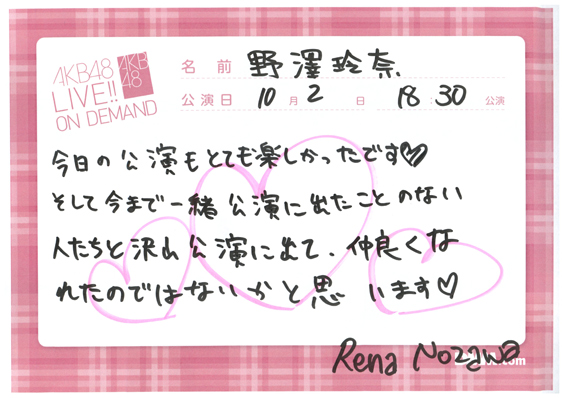 AKB48
LIVE!!
ON DEMAND
AKB
48
名前 野澤玲奈
公演日 10月2日 18:30公演
今日の公演もとても楽しかったです♡
そして今まで一緒公演に出たことのない
人たちと沢山公演に出て、仲良くな
れたのではないかと思います♡
Rena Nozawa
.com